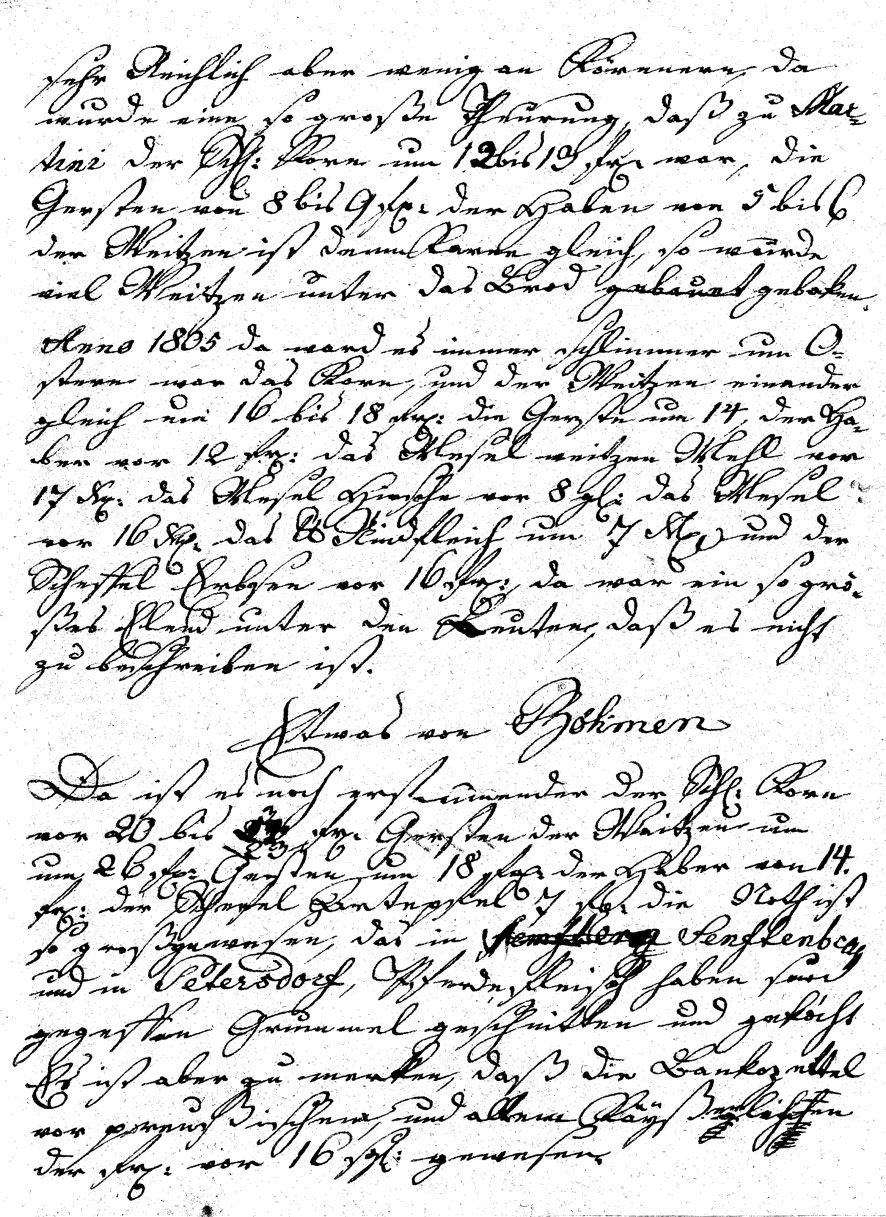 sehr Reichlich aber wenig an Körenern, da
wurde eine so große Theurung, daß zu Mar-
tini der Schl: Korn um 12 bis 13 fr: war, die
Gersten von 8 bis 9 fr: der Haben von 5 bis 6
der Weitzen ist dem Korne gleich, so wurde
viel Weitzen unter das Brod gebauet gebaken.
Anno 1805 da ward es immer schlimmer um O-
stern war das Korn, und der Weitzen einander
gleich um 16 bis 18 fr: die Gerste um 14, der Ha-
ber vor 12 fr: das Mesel weitzen Mehl vor
17 das Mesel Hirsche vor 8 gl: das Mesel
vor 16 das Rindfleich um 7 und der
Scheffel Erbsen vor 16 fr:, da war ein so gro-
ßes Elend unter den Leuten, daß es nicht
zu beschreiben ist.
Etwas von Böhmen
Da ist es noch der Schl: Korn
vor 20 bis fr: Gersten der Weitzen um
um 26 fr: Gersten um 18 fr: der Haber von 14.
fr: der Schefel 7 fr: die Noth ist
so groß gewesen, das in Senftenberg
und in Petersdorf, Pferdefleisch haben
gegessen Grummel geschnitten und gekocht
Es ist aber zu merken, daß die Bankozettel
vor preußischem, und altem Käyßerlichen
der fr: vor 16 sgl: gewesen.